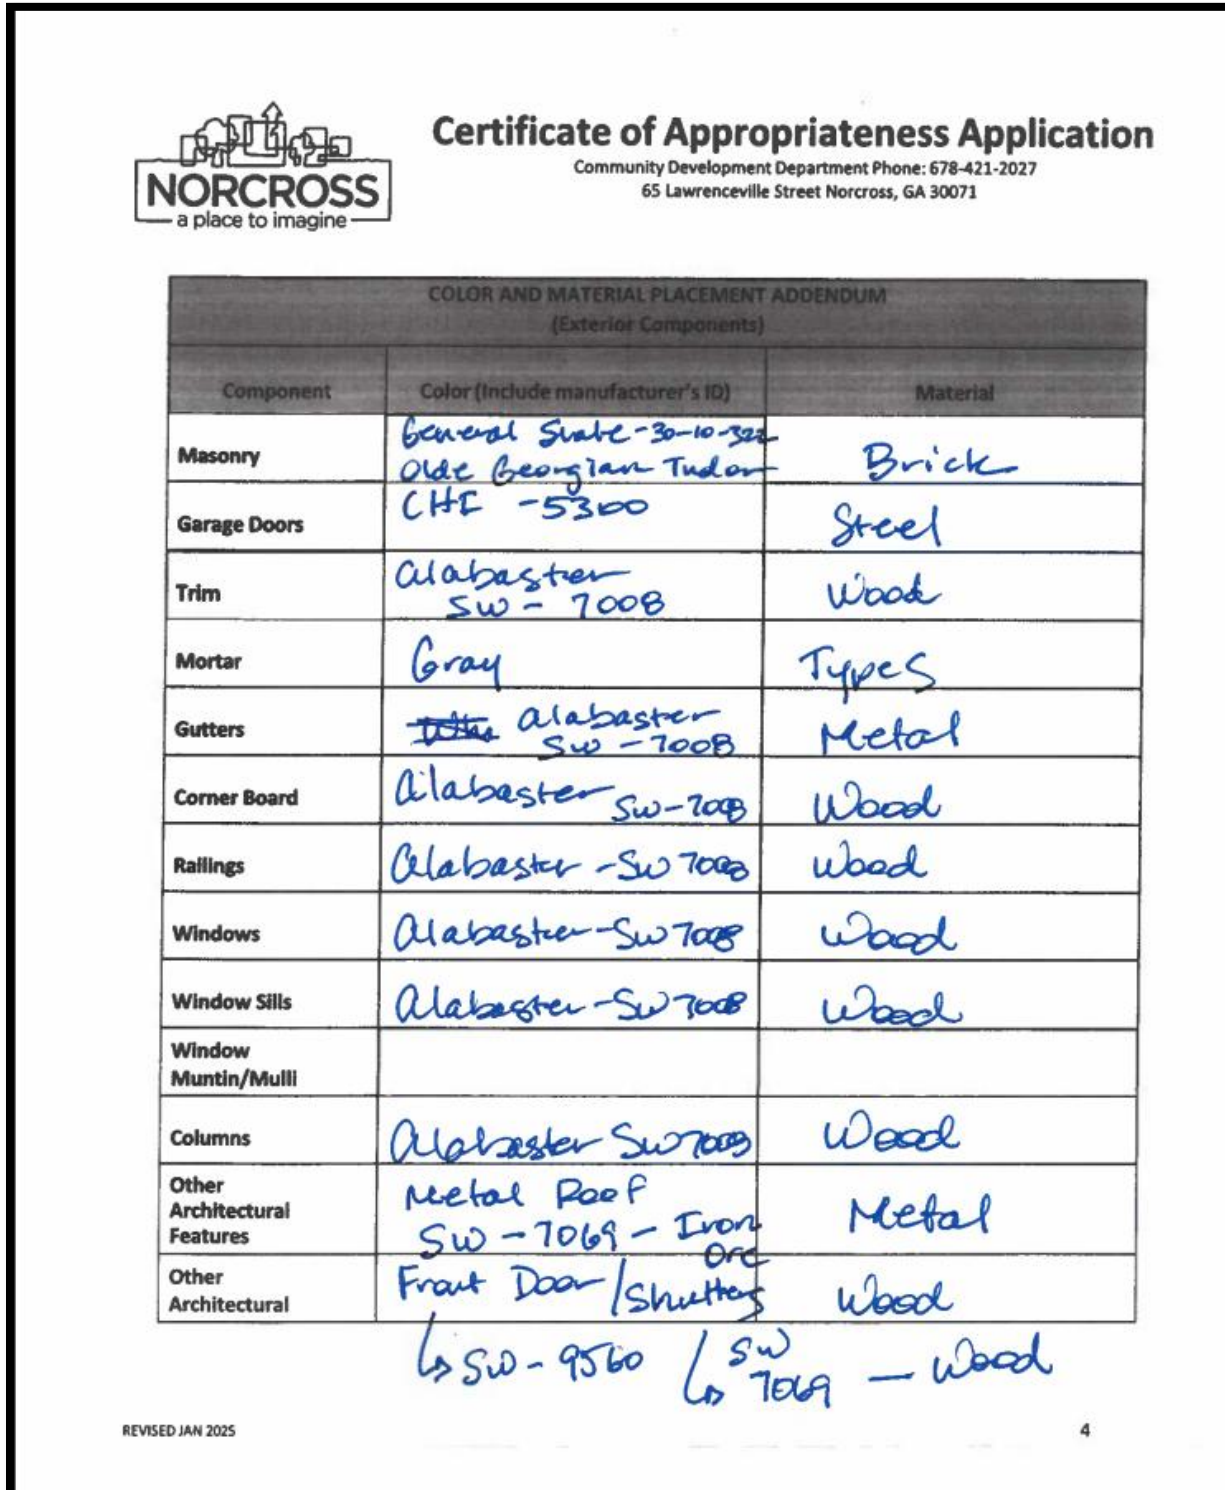 NORCROSS
a place to imagine
Certificate of Appropriateness Application
Community Development Department Phone: 678-421-2027
65 Lawrenceville Street Norcross, GA 30071
COLOR AND MATERIAL PLACEMENT ADDENDUM
(Exterior Components)
Component Color (Include manufacturer's ID) Material
Masonry General Shale-30-10-322 Brick
Olde Georgian Tudor
Garage Doors CHI -5300 Steel
Trim Alabaster Wood
SW - 7008
Mortar Gray Type S
Gutters Alabaster Metal
SW - 7008
Corner Board Alabaster SW-7008 Wood
Railings Alabaster - SW 7008 Wood
Windows Alabaster - SW 7008 Wood
Window Sills Alabaster - SW 7008 Wood
Window
Muntin/Mulli
Columns Alabaster SW 7008 Wood
Other
Architectural
Features Metal Roof Metal
SW - 7069 - Iron
Ore
Other
Architectural Front Door / Shutters Wood
↳ SW - 9560 ↳ SW
7069 — Wood
REVISED JAN 2025 4